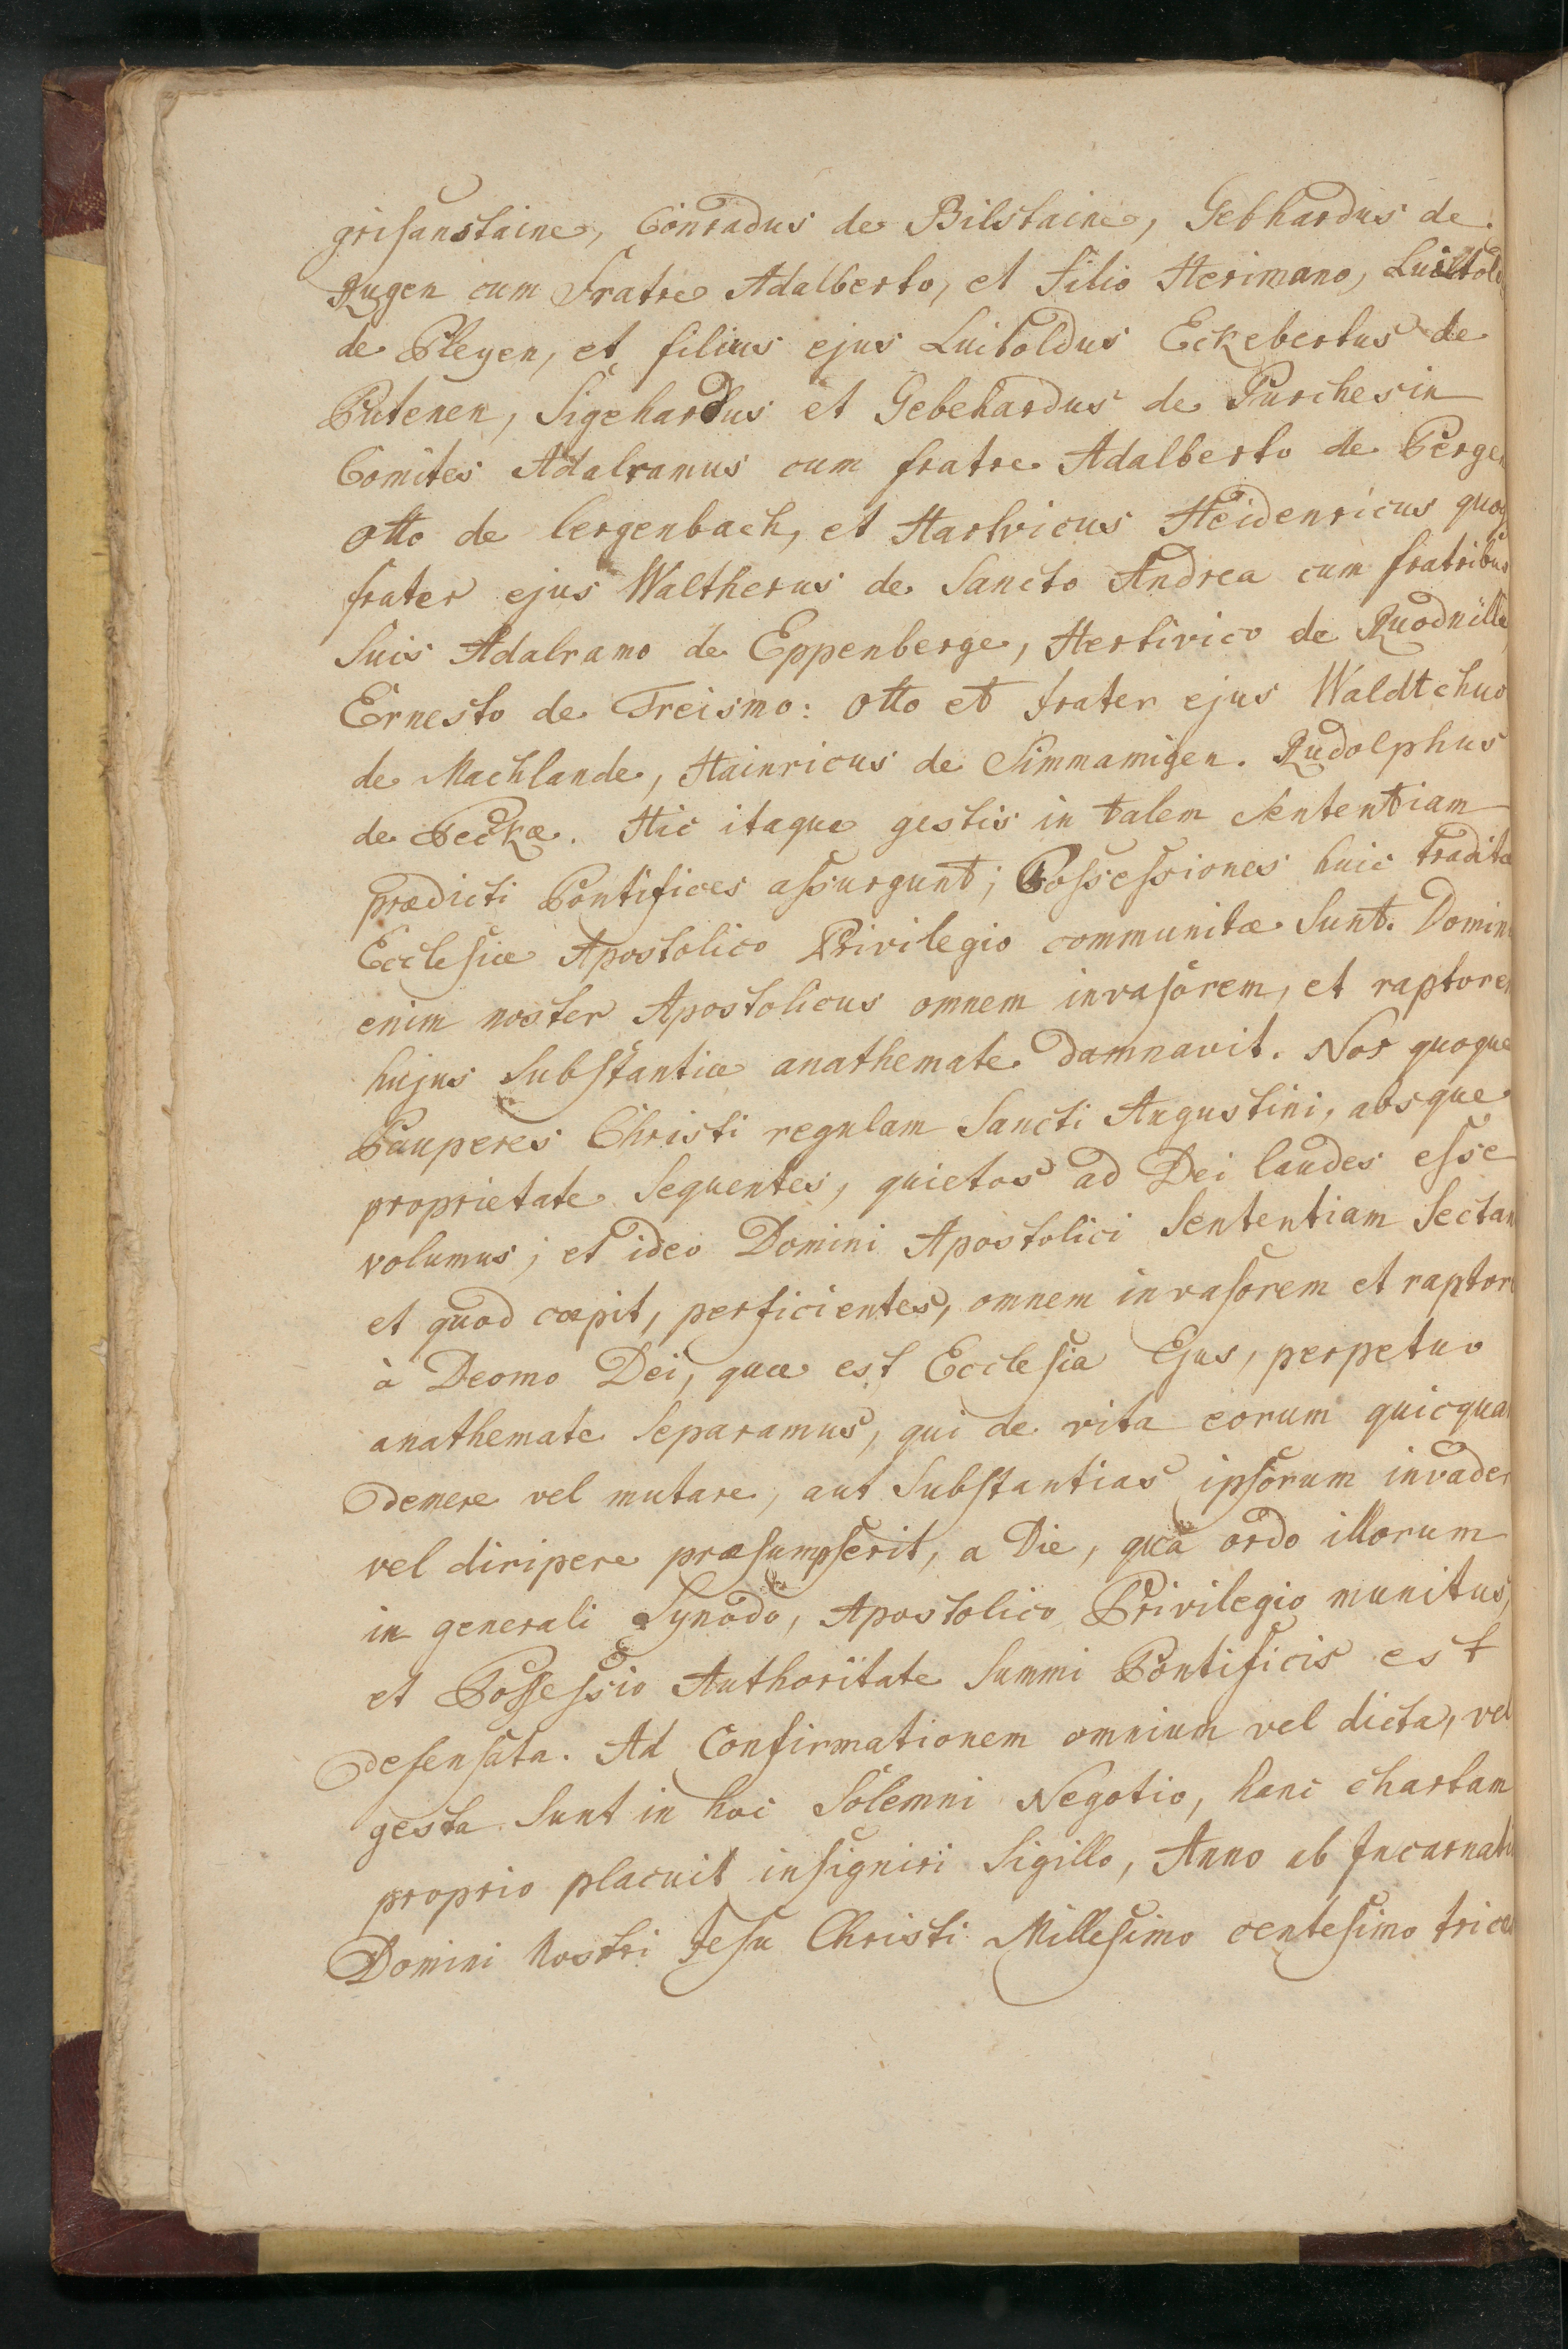 grisanstaine, Conradus de Bilstaine, Gebhardus de
Rugen cum Fratre Adalberto, et Filio Herimano, Luittold
de Pleyen, et filius ejus Luitoldus Eckebertus de
Putenen, Sigehardus et Gebehardus de Purchesin
Comites Adalramus cum fratre Adalberto de Pergen
Otto de lergenbach, et Hartvicus Heidenricus quoq
frater ejus Waltherus de Sancto Andrea cum fratribus
Suis Adalramo de Eppenberge, Hertivico de Ruodnille
Ernesto de Treismo: Otto et frater ejus Waldtchuo
de Machlande, Hainricus de Simmamigen. Rudolphus
de Peckæ. Hic itaque gestis in talem Sententiam
prædicti Pontifices assurgunt; Possessiones huic tradita
Ecclesiæ Apostolico Privilegio communitæ Sunt. Domin
enim noster Apostolicus omnem invasorem, et raptorem
hujus Substantiæ anathemate damnavit. Nos quoque
Pauperes Christi regulam Sancti Augustini, absque
proprietate Sequentes, quietos ad Dei laudes esse
volumus; et ideo Domini Apostolici Sententiam Sectan
et quod cœpit, perficientes, omnem invasorem et raptor
à Deomo Dei, quæ est Ecclesia Ejus, perpetuo
anathemate Separamus, qui de vita eorum quicqua
demere vel mutare, aut Substantias ipsorum invade
vel diripere præsumpserit, a Die, quâ ordo illorum
in generali Synodo, Apostolico Privilegio munitus,
et Possessio Authoritate Summi Pontificis est
defensata. Ad Confirmationem omnium vel dicta, vel
gesta Sunt in hoc Solemni Negotio, hanc chartam
proprio placuit insigniri Sigillo, Anno ab Incarnati
Domini Nostri Jesu Christi Millesimo centesimo trice